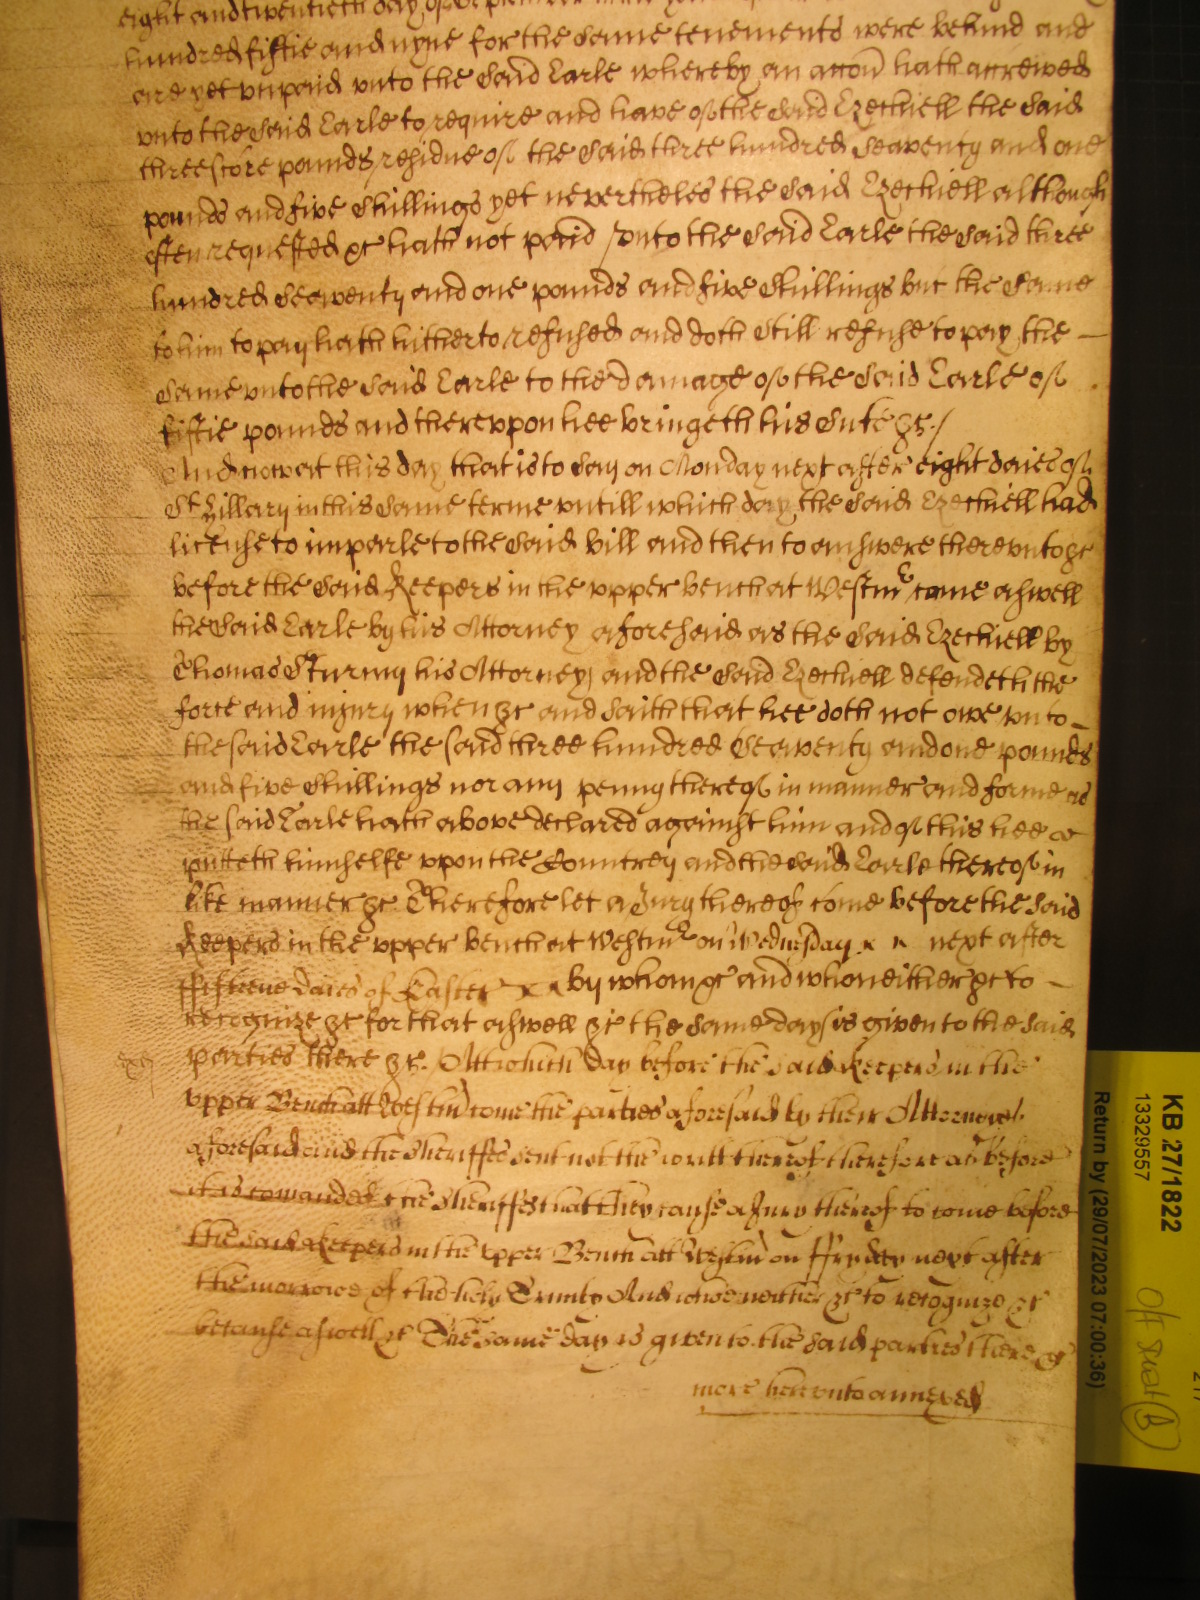 eight and twentieth day of September
hundred fiftie and nyne for the same tenements were behind and
are yet vnpaid vnto the said Earle whereby an accōn hath accrewed
vnto the said Earle to require and have of the said Ezechiell the said
threescore pounds residue of the said three hundred Seaventy and one
pounds and five Shillings yet nevertheles the said Ezechiell although
often requested &c hath not paid vnto the said Earle the said three
hundred Seaventy and one pounds and five Shillings but the same
to him to pay hath hitherto refused and doth still refuse to pay the
same vnto the said Earle to the damage of the said Earle of
fiftie pounds and therevpon hee bringeth his Sute &c./
And now at this day that is to say on Monday next after eight daies of
St Hillary in this same terme vntill which day the said Ezechiell had
license to imparle to the said bill and then to answere therevnto &c
before the said Keepers in the vpper bench at Westmr came aswell
the said Earle by his Attorney aforesaid as the said Ezechiell by
Thomas Sturmy his Attorney and the said Ezechiell defendeth the
force and injury when &c and saith that hee doth not owe vnto
the said Earle the said three hundred Seaventy and one pounds
and five Shillings nor any penny thereof in manner and forme as
the said Earle hath above declared against him and of this hee
putteth himselfe vpon the Countrey and the said Earle thereof in
like manner &c Therefore let a Jury thereof come before the said
Keepers in the vpper bench at Westmr on Wednesday next after
ffifteene daies of Easter by whom &c and who neither &c to
recognize &c for that aswell &c the same day is given to the said
parties there &c. Att which day before the said Keepers in the
vpper Bench att Westm come the parties aforesaid by their Attorneyes
aforesaid and the Sheriffes sent not the writt thereof therefore as before
it is comanded the Sheriffes that they cause a Jury thereof to come before
the said Keepers in the vpper Bench att Westm on ffryday next after
the morrowe of the holy Trinity And whoe neither &c to recognize &c
because aswell &c The same day is given to the said parties there &c
more herevnto annexed
KB 27/1822
13329557
Return by (29/07/2023 07:00:36)